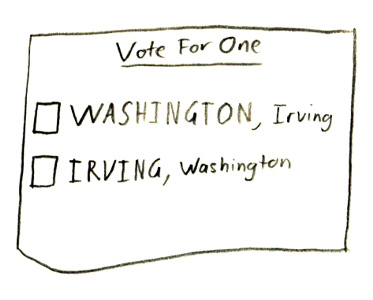 Vote For One
WASHINGTON, Irving
IRVING, Washington